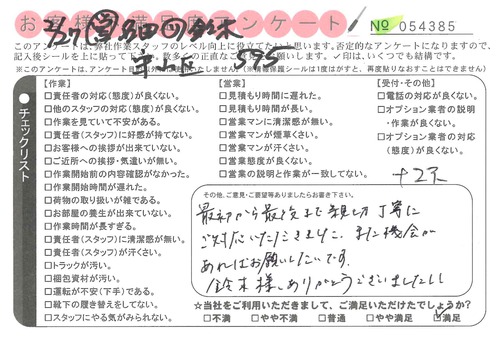 お客様満足度アンケート
№ 054385
このアンケートは、弊社作業スタッフのレベル向上に役立てたいと思います。否定的なアンケートになりますので、
※このアンケートは、アンケート
チェックリスト
【作業】
□責任者の対応(態度)が良くない。
□他のスタッフの対応(態度)が良くない。
□作業を見ていて不安がある。
□責任者(スタッフ)に好感が持てない。
□お客様への挨拶が出来ていない。
□ご近所への挨拶・気遣いが無い。
□作業開始前の内容確認がなかった。
□作業開始時間が遅れた。
□荷物の取り扱いが雑である。
□お部屋の養生が出来ていない。
□作業時間が長すぎる。
□責任者(スタッフ)に清潔感が無い。
□責任者(スタッフ)が汗くさい。
□トラックが汚い。
□梱包資材が汚い。
□運転が不安(下手)である。
□靴下の履き替えをしてない。
□スタッフにやる気がみられない。
【営業】
□見積もり時間に遅れた。
□見積もり時間が長い。
□営業マンに清潔感が無い。
□営業マンが煙草くさい。
□営業マンが汗くさい。
□営業態度が良くない。
□営業の説明と作業が一致してない。
【受付・その他】
□電話の対応が良くない。
□オプション業者の説明
・作業が良くない。
□オプション業者の対応
(態度)が良くない。
その他、ご意見・ご要望等ありましたらお書き下さい。
最初から最後まで親切丁寧に
ご対応いただきました。また機会が
あればお願いしたいです。
鈴木様、ありがとうございました!!
☆当社をご利用いただきまして、ご満足いただけたでしょうか?
□不満 □やや不満 □普通 □やや満足 ☑満足